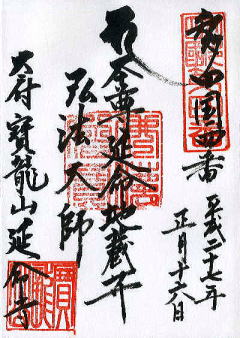 新四国四番
平成二十七年
正月十六日
本尊延命地蔵尊
弘法大師
大府 寶龍山延命寺